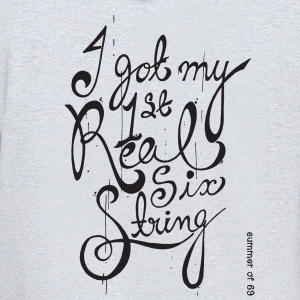 I got my
1st
Real
Six
String
summer of 69